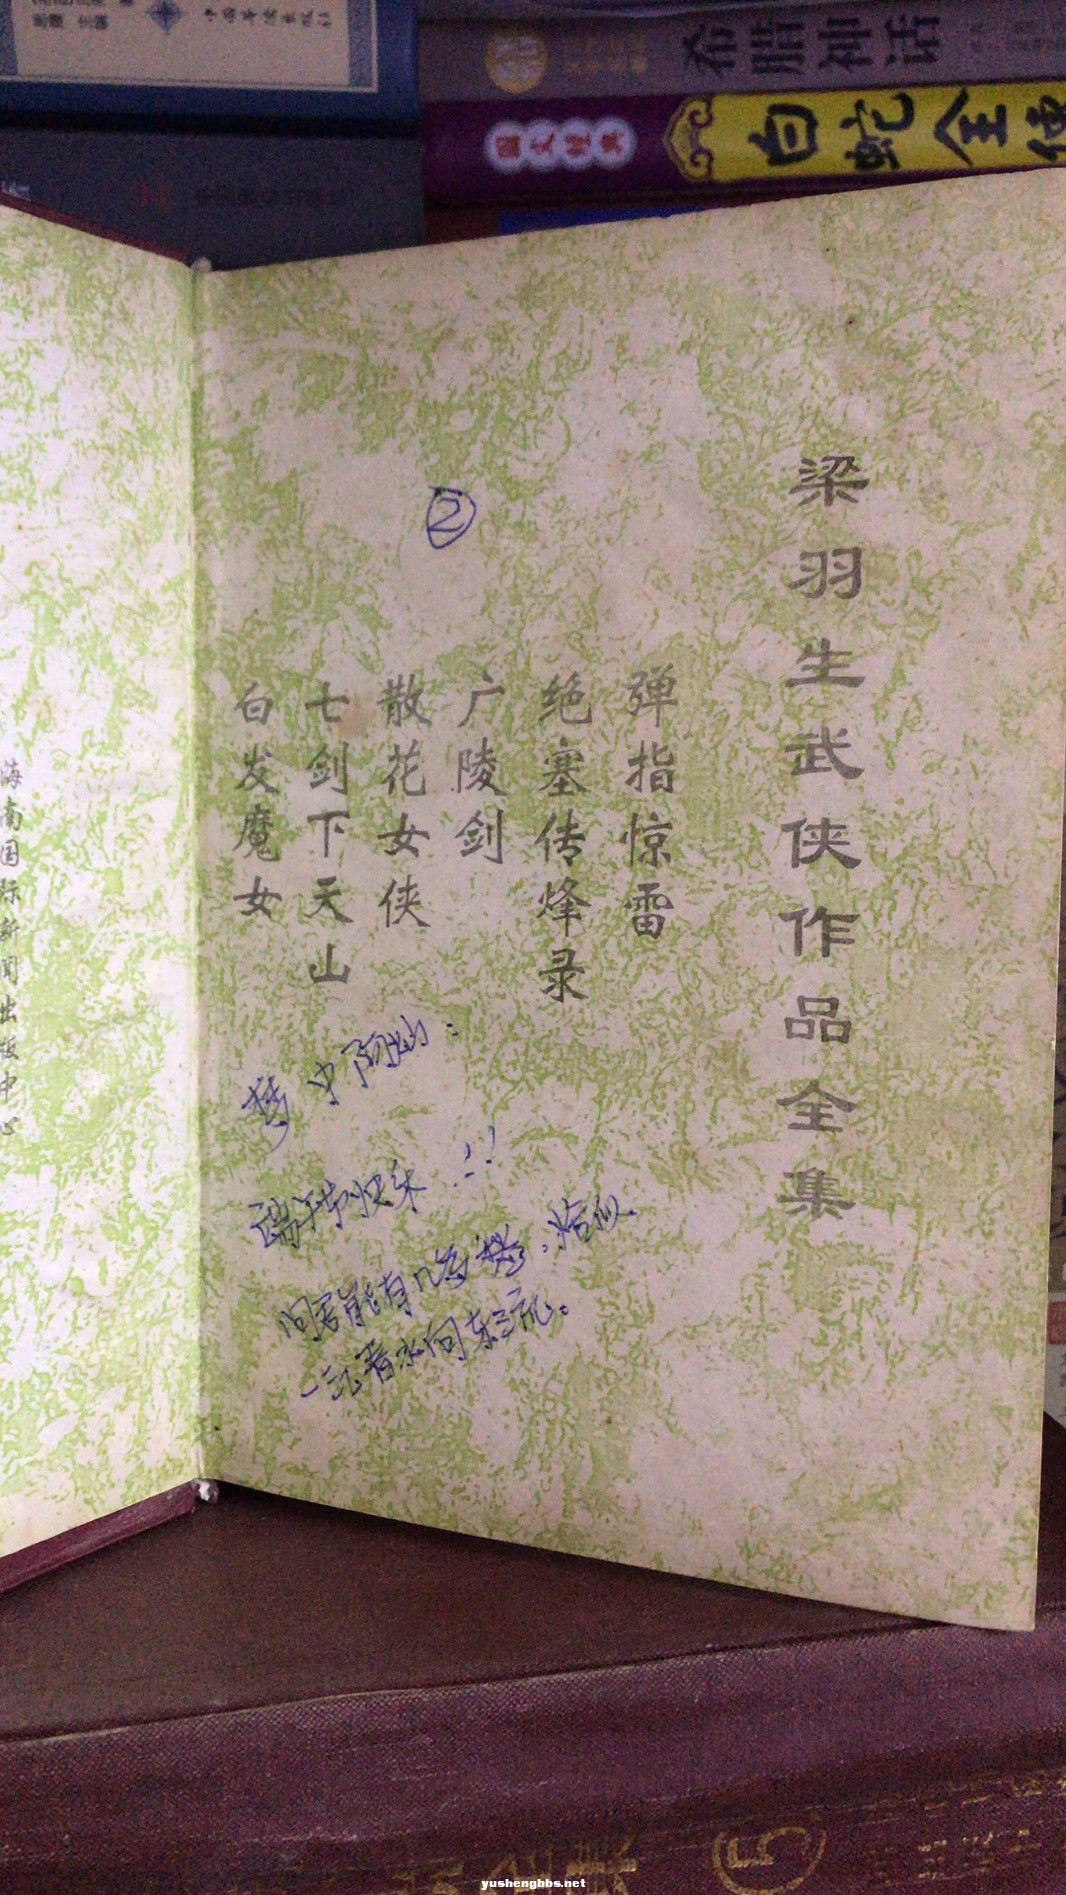 希腊神话
白蛇全传
梁羽生武侠作品全集
②
弹指惊雷
绝塞传烽录
广陵剑
散花女侠
七剑下天山
白发魔女
海南国际新闻出版中心
梦中
归来!!
问君能有几多愁,恰似
一江春水向东流。
yushengbbs.net